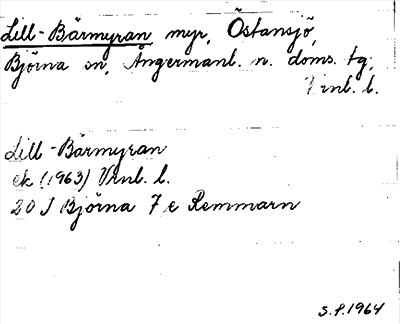 Lill-Bärmyran myr, Östansjö,
Björna sn, Ångermanl. n. doms. tg,
Vrnl. l.
Lill-Bärmyran
ek (1963) Vrnl. l.
20 J Björna 7 e Remmarn
S.P.1964